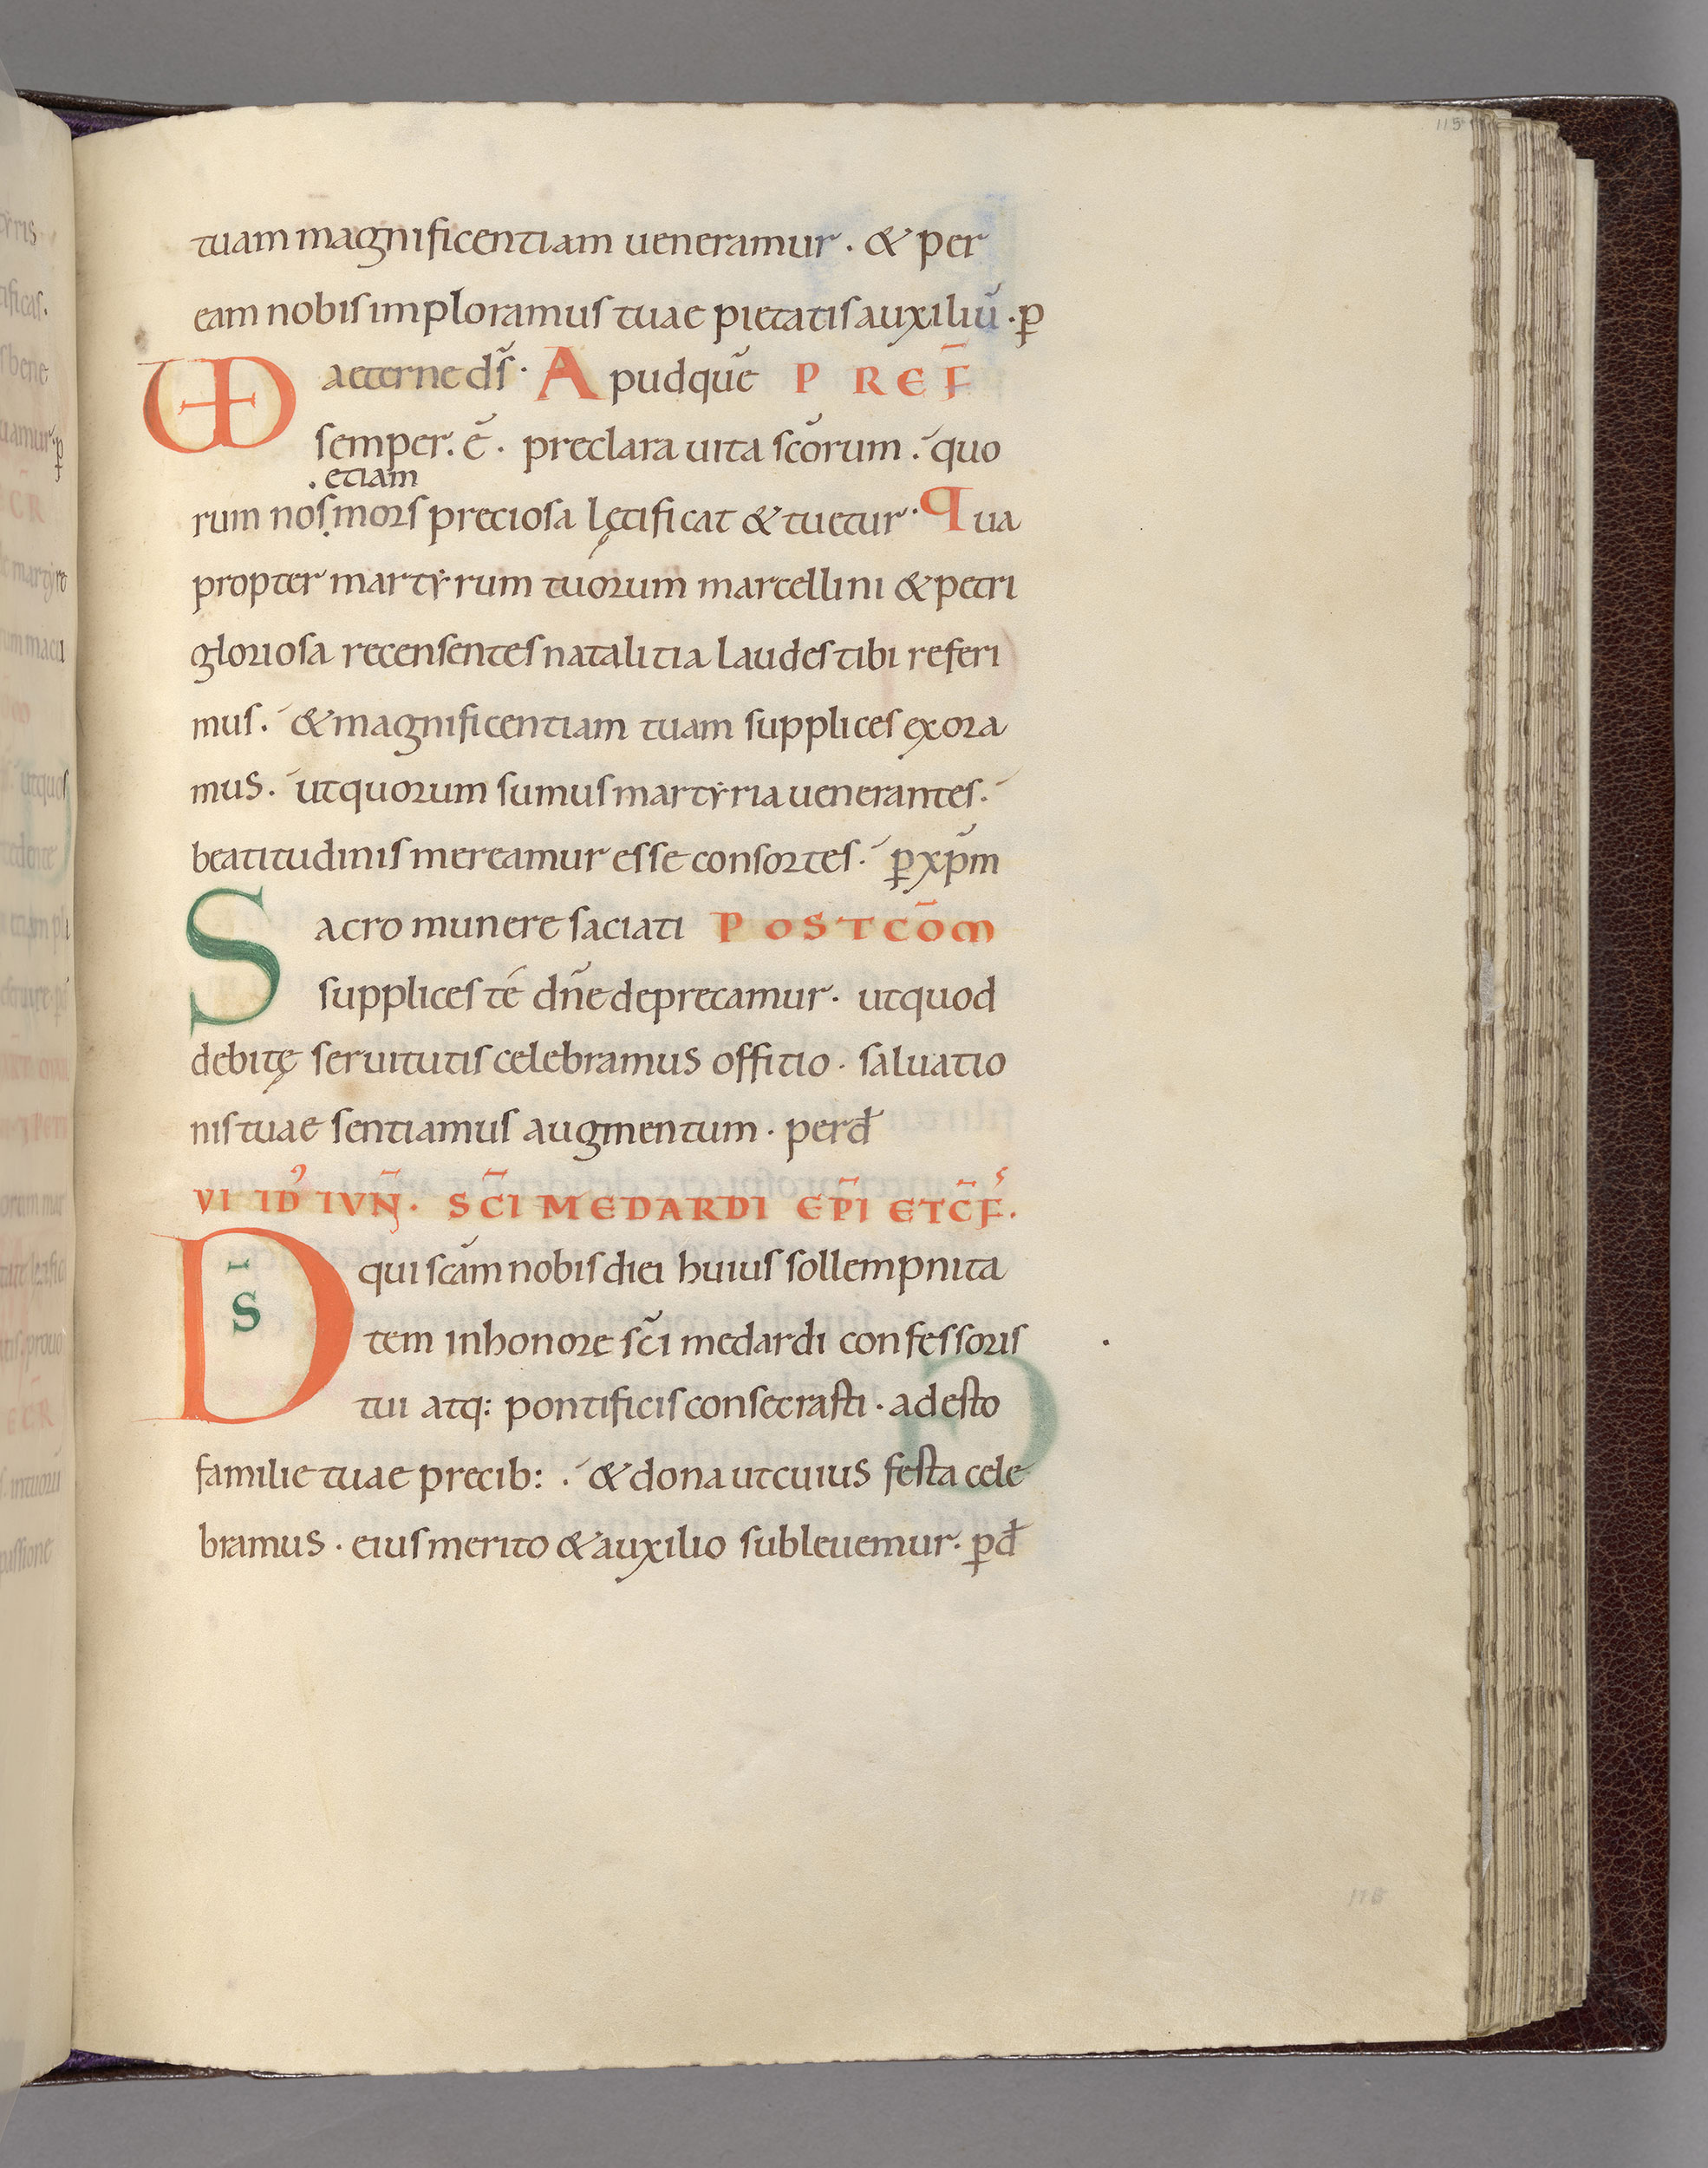 115
tuam magnificentiam ueneramur · & per
eam nobis imploramus tuae pietatis auxiliū · ꝑ
UD aeterne ds̄ · Apud quē PREF̄
semper · ē · preclara uita scōrum · quo
· etiam
rum nos mors preciosa lętificat & tuetur · Qua
propter martyrum tuorum marcellini & petri
gloriosa recensentes natalitia laudes tibi referi
mus · & magnificentiam tuam supplices exora
mus · ut quorum sumus martyria uenerantes ·
beatitudinis mereamur esse consortes · ꝑ xp̄m
Sacro munere saciati POSTCŌM
supplices te dn̄e deprecamur · ut quod
debitę seruitutis celebramus offitio · saluatio
nis tuae sentiamus augmentum · per đ
VI ID' IVN̄ · SC̄I MEDARDI EP̄I ET C̄F̄ ·
DS̄ qui scām nobis diei huius sollempnita
tem in honore sc̄i medardi confessoris
tui atq: pontificis consecrasti · adesto
familie tuae precib: · & dona ut cuius festa cele
bramus · eius merito & auxilio subleuemur · ꝑ đ